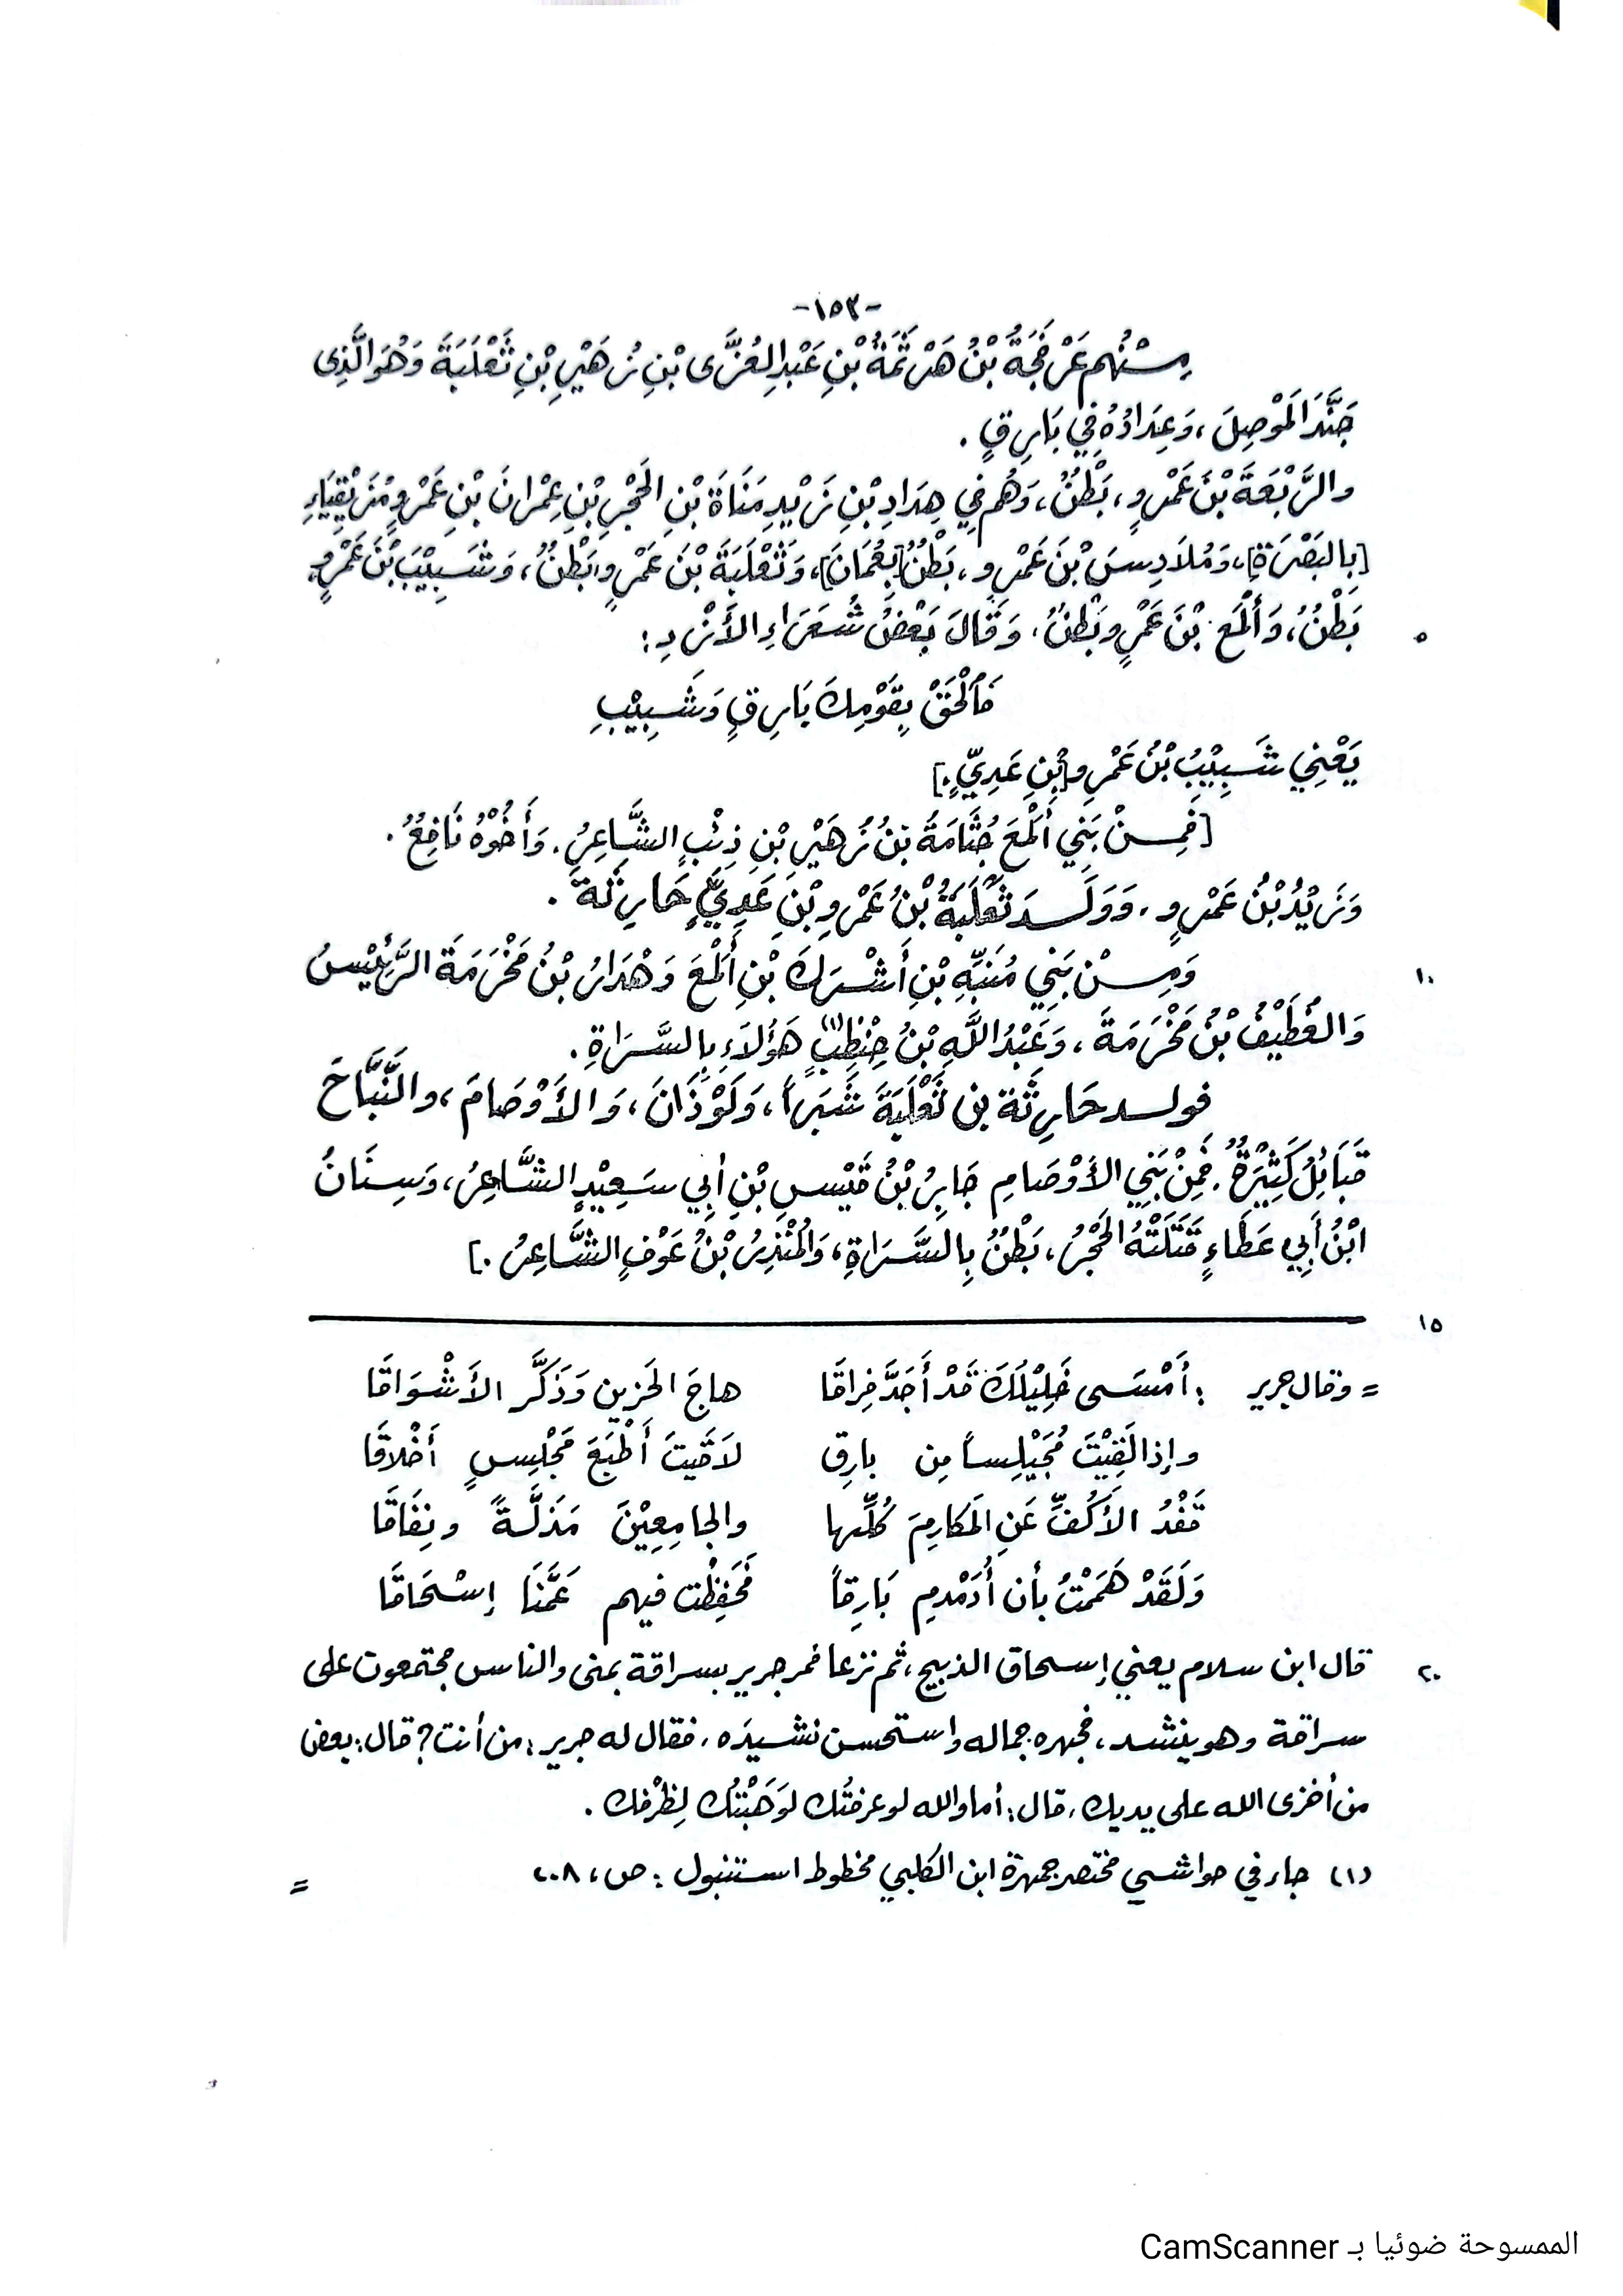 -١٥٣-
مِنْهُم عَرْفَجَةُ بْنُ هَرْثَمَةَ بْنِ عَبْدِ العُزَّى بْنِ زُهَيْرِ بْنِ ثَعْلَبَةَ وَهُوَ الَّذِى
جَنَّدَ المَوْصِلَ، وَعِدَادُهُ فِي بَارِقٍ.
والرَّبْعَةَ بْنَ عَمْرٍو، بَطْنٌ، وَهُم فِي هِدَادِ بْنِ زَيْدِ مَنَاةَ بْنِ الحَجْرِ بْنِ عِمْرانَ بْنِ عَمْرٍو مُزَيْقِيَاءِ
[بِالبَصْرَةِ]، وَمُلَادِسَ بْنَ عَمْرٍو، بَطْنٌ [بِعُمَانَ]، وَثَعْلَبَةَ بْنَ عَمْرٍو، بَطْنٌ، وَشَبِيْبَ بْنَ عَمْرٍو،
بَطْنٌ، وَأَلْمَعَ بْنَ عَمْرٍو بَطْنٌ، وَقَالَ بَعْضُ شُعَرَاءِ الأَزْدِ: ٥
فَالْحَقْ بِقَوْمِكَ بَارِقٍ وَشَبِيْبِ
يَعْنِي شَبِيْبُ بْنُ عَمْرِو [بْنِ عَدِيٍّ.]
[فَمِنْ بَنِي أَلْمَعَ جُثَامَةُ بنُ زُهَيْرِ بْنِ ذِئْبٍ الشَّاعِرُ، وَأَخُوْهُ نَافِعٌ.
وَزَيْدُ بْنُ عَمْرٍو، وَوَلَدَ ثَعْلَبَةُ بْنُ عَمْرِو بْنِ عَدِيٍّ حَارِثَةَ.
وَمِنْ بَنِي مُنَبِّهِ بْنِ أَشْرَكَ بْنِ أَلْمَعَ وَهْدَارُ بْنُ مَخْرَمَةَ الرَّئِيْسُ ١٠
وَالغُطَيْفُ بْنُ مَخْرَمَةَ، وَعَبْدُ اللَّهِ بْنُ حِنْظِبٍ(١) هَؤُلَاءِ بِالسَّرَاةِ.
فولد حَارِثَة بن ثَعْلَبَةَ شَبَراً، وَلَوْذَانَ، وَالأَوْصَامَ، والنَّبَّاحَ
قَبَائِلُ كَثِيْرَةٌ. فَمِنْ بَنِي الأَوْصَامِ جَابِرُ بْنُ قَيْسِ بْنِ أبِي سَعِيْدٍ الشَّاعِرُ، وَسِنَانُ
ابْنُ أَبِي عَطَاءٍ قَتَلَتْهُ الحَجْرُ، بَطْنٌ بِالسَّرَاةِ، وَالمُنْذِرُ بْنُ عَوْفٍ الشَّاعِرُ.]
١٥
= وقال جرير : أَمْسَى خَلِيْلُكَ قَدْ أَجَدَّ فِراقَا هاجَ الحَزِين وَذَكَّر الأَشْوَاقَا
وإذا لَقِيْتَ مُجَيْلِساً مِن بارِق لاَقَيتَ أَطْبَعَ مَجْلِسٍ أَخْلاقَا
قَفْدُ الأَكُفِّ عَنِ المَكارِمَ كُلِّها والجامِعِيْنَ مَذَلَّةً ونِفَاقَا
وَلَقَدْ هَمَمْتُ بأن أُدَمْدِمِ بَارِقاً فَحَفِظْت فيهم عَمَّنَا إسْحَاقَا
قال ابن سلام يعني إسحاق الذبيح، ثم نزعا فمر جرير بسراقة بمنى والناس مجتمعون على ٢٠
سراقة وهو ينشد، فجهره جماله واستحسن نشيدَه، فقال له جرير: من أنت؟ قال: بعض
من أخزى الله على يديك، قال: أما والله لو عرفتُك لوَهَبْتُك لِظرْفك.
(١) جاء في حواشي مختصر جمهرة ابن الكلبي مخطوط استنبول: ص، ٢٠٨ =
الممسوحة ضوئيا بـ CamScanner